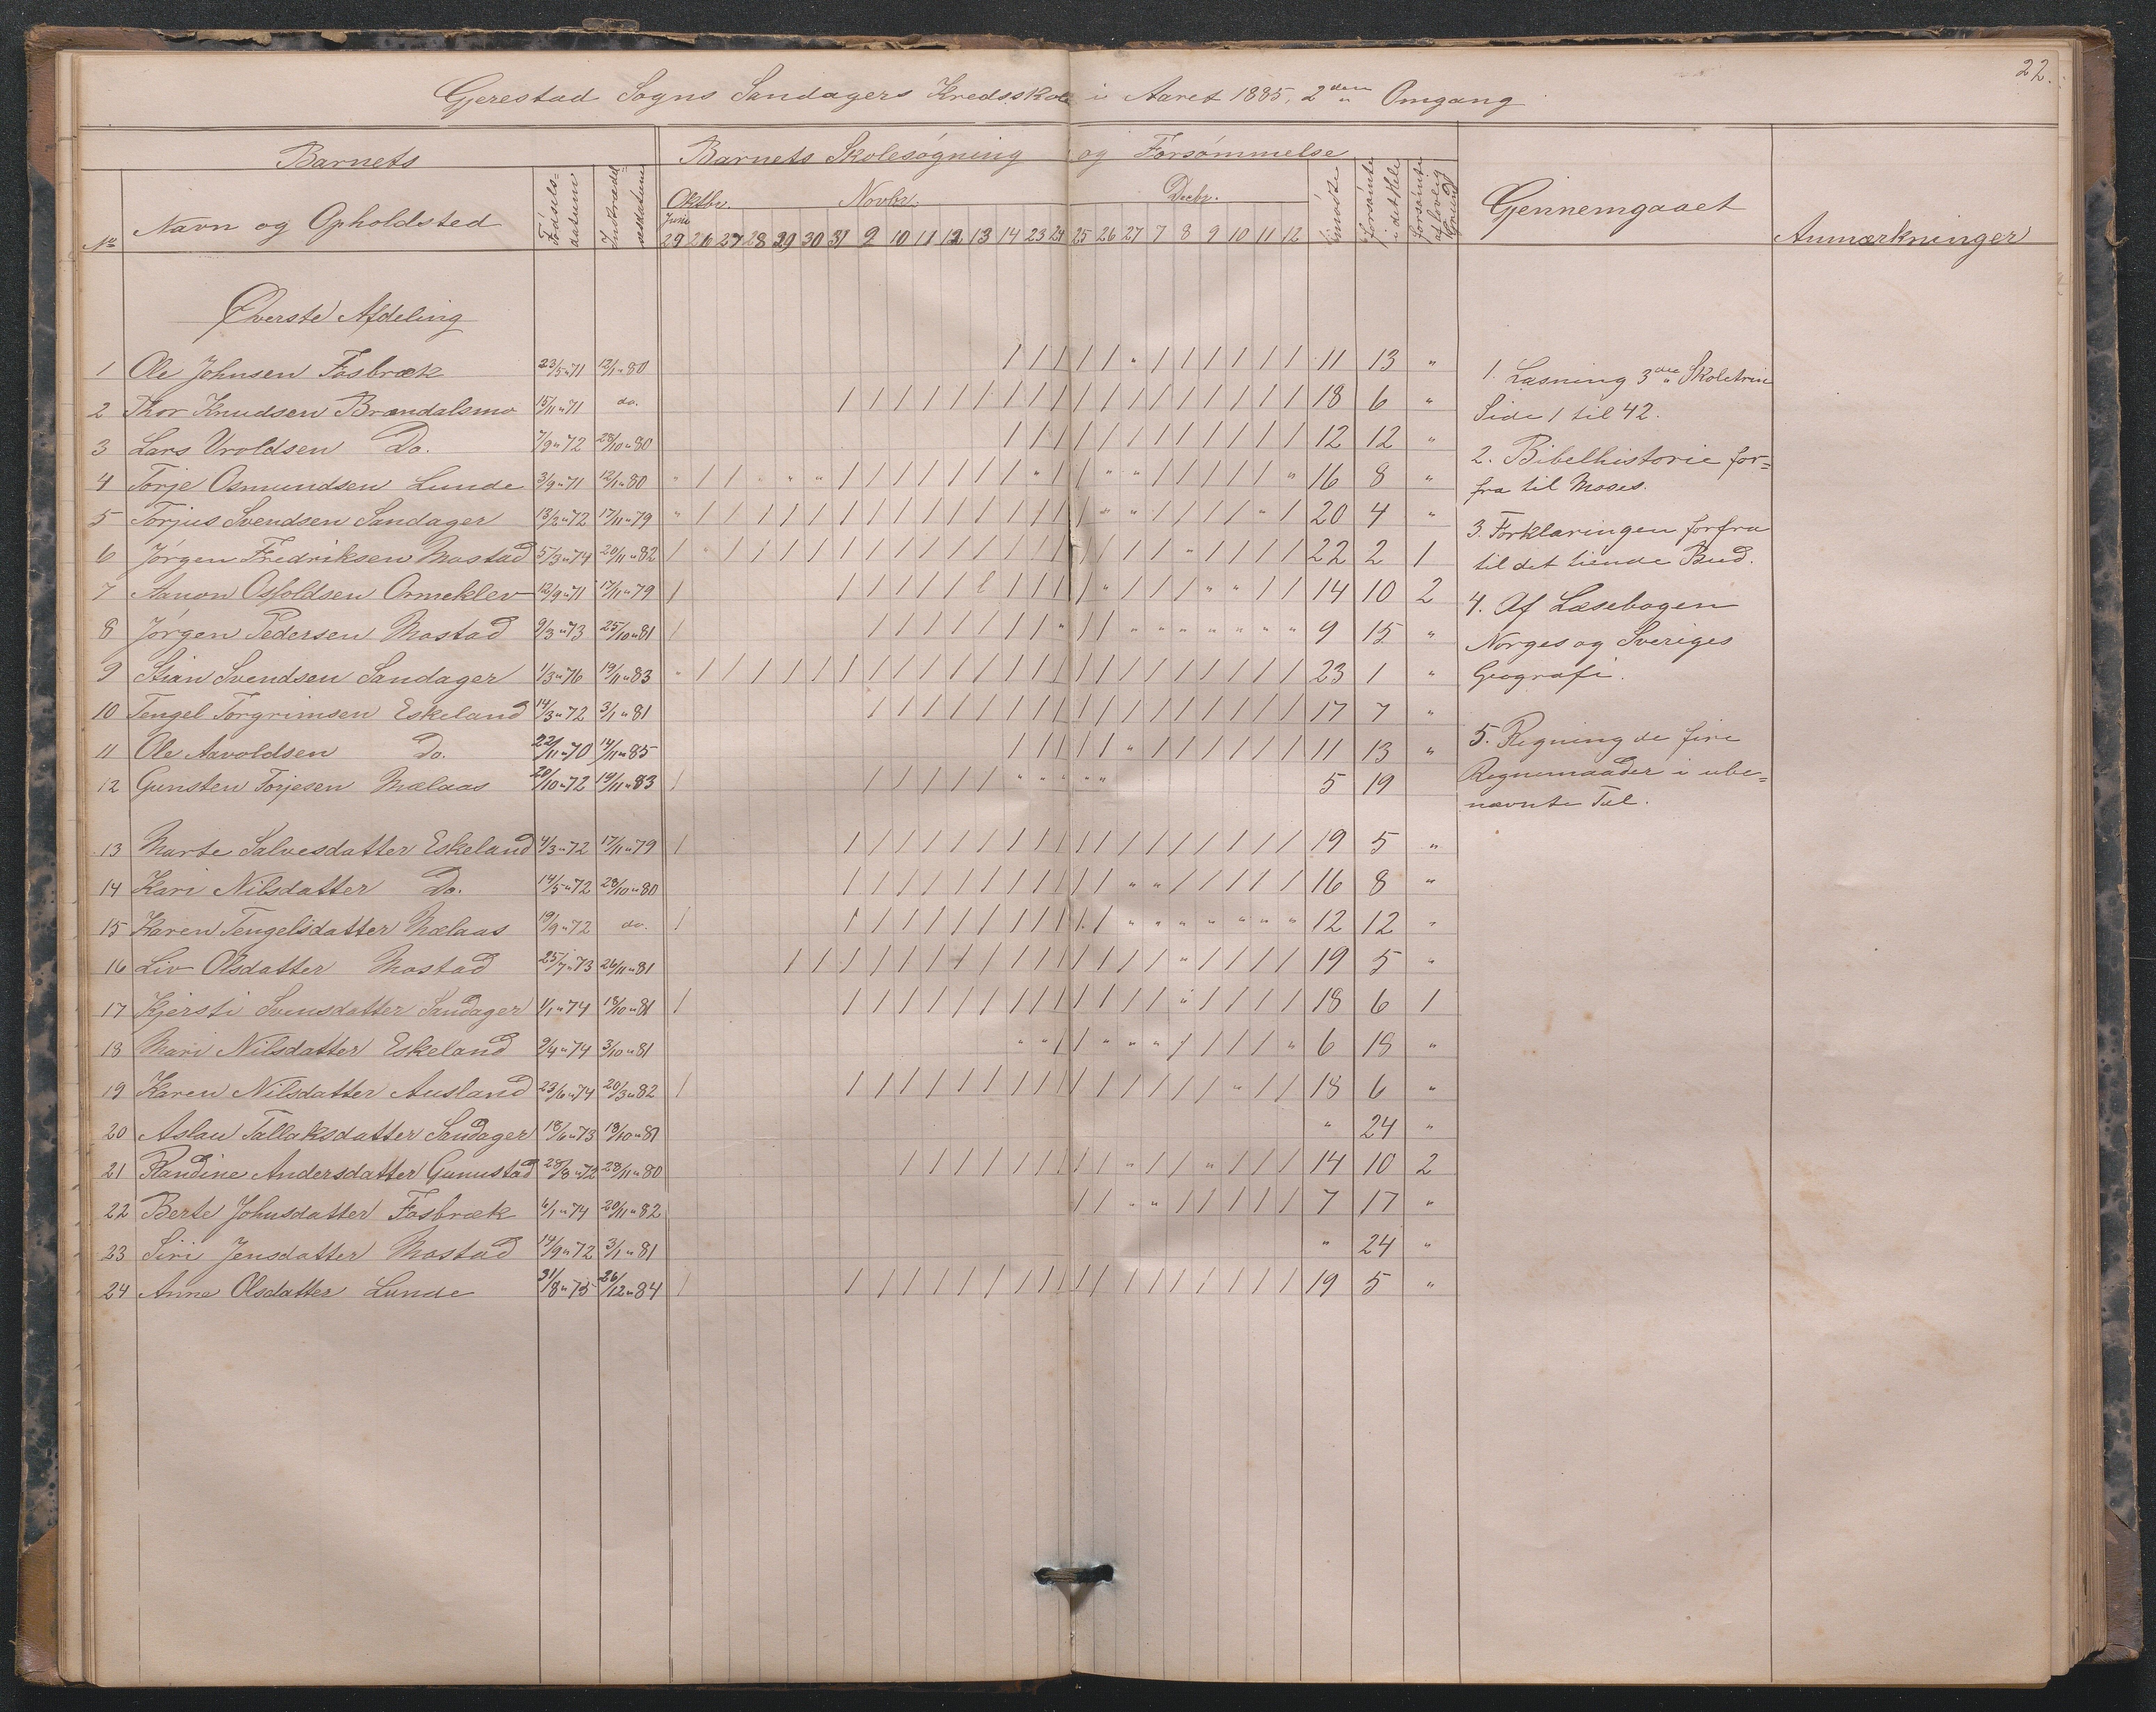 22.
Gjerestad Sogns Sandagers Kredsskole i Aaret 1885, 2den Omgang
Barnets Barnets Skolesøgning og Forsømmelse
No Navn og Opholdsted Fødsels-datum Indtrædelsesdatum Juni Oktbr. Novbr. Decbr. mødte forsømte i det Hele forsømte af lovlig Grund Gjennemgaaet Anmærkninger
29 26 27 28 29 30 31 9 10 11 12 13 14 23 24 25 26 27 7 8 9 10 11 12
Øverste Afdeling
1 Ole Johnsen Fosbræk 23/5 " 71 12/1 " 80 / / / / / " / / / / / / 11 13 "
2 Thor Knudsen Brændalsmo 15/11 " 71 do. / / / / / / / / / / / / / / / / / / 18 6 "
3 Lars Uroldsen Do. 7/9 " 72 28/10 " 80 / / / / / / / / / / / / 12 12 "
4 Torje Osmundsen Lunde 3/9 " 71 12/1 " 80 " / / " " " / / / / / / / " / / " " / / / / / " 16 8 "
5 Torjus Svendsen Sandager 13/2 " 72 17/11 " 79 " / / / / / / / / / / / / / / / " " / / / / " / 20 4 "
6 Jørgen Fredriksen Mostad 5/3 " 74 20/11 " 82 / " / / / / / / / / / / / / / / / / / " / / / / 22 2 1
7 Aanon Osfoldsen Ormeklev 12/9 " 71 17/11 " 79 / / / / / / / / / / " / / / " " / / 14 10 2
8 Jørgen Pedersen Mostad 9/3 " 73 25/10 " 81 / / / / / / / / " / / " " " " " " " 9 15 "
9 Stian Svendsen Sandager 1/3 " 76 19/11 " 83 " / / / / / / / / / / / / / / / / / / / / / / / 23 1 "
10 Tengel Torgrimsen Eskeland 14/3 " 72 3/1 " 81 / / / / / / / / / / / / / / / / / 17 7 "
11 Ole Aavoldsen Do. 22/11 " 70 14/11 " 85 / / / / / " / / / / / / 11 13 "
12 Gunsten Torjesen Mælaas 20/10 " 72 19/11 " 83 / / / / / / " " " " " 5 19
13 Marte Salvesdatter Eskeland 4/3 " 72 17/11 " 79 / / / / / / / / / / / / / / / / / / / 19 5 "
14 Kari Nilsdatter Do. 14/5 " 72 28/10 " 80 / / / / / / / / / / / " " / / / / / 16 8 "
15 Karen Tengelsdatter Mælaas 19/9 " 72 do. / / / / / / / / / / / " " " " " " " 12 12 "
16 Liv Olsdatter Mostad 25/7 " 73 26/11 " 81 / / / / / / / / / / / / / / / " / / / / 19 5 "
17 Kjersti Svensdatter Sandager 1/1 " 74 18/10 " 81 / / / / / / / / / / / / / / " / / / / 18 6 1
18 Mari Nilsdatter Eskeland 9/4 " 74 3/10 " 81 " " / / " " " / / / / " 6 18 "
19 Karen Nilsdatter Ausland 23/6 " 74 20/3 " 82 / / / / / / / / / / / / / / / / " / / 18 6 "
20 Aslau Tallaksdatter Sandager 18/6 " 73 18/10 " 81 " 24 "
21 Randine Andersdatter Gunnustad 28/8 " 72 28/11 " 80 / / / / / / / / / " / / " / / / 14 10 2
22 Berte Johnsdatter Fosbræk 6/1 " 74 20/11 " 82 / / " " / / / / / 7 17 "
23 Siri Jensdatter Mostad 14/9 " 72 3/1 " 81 " 24 "
24 Anne Olsdatter Lunde 31/8 " 75 26/12 " 84 / / / / / / / / / / / / / / / / / / / 19 5 "
1. Læsning 3die Skoletrin
Side 1 til 42.
2. Bibelhistorie for=
fra til Moses.
3. Forklaringen forfra
til det tiende Bud.
4. Af Læsebogen
Norges og Sveriges
Geografi.
5. Regning de fire
Regnemaader i ube=
nævnte Tal.